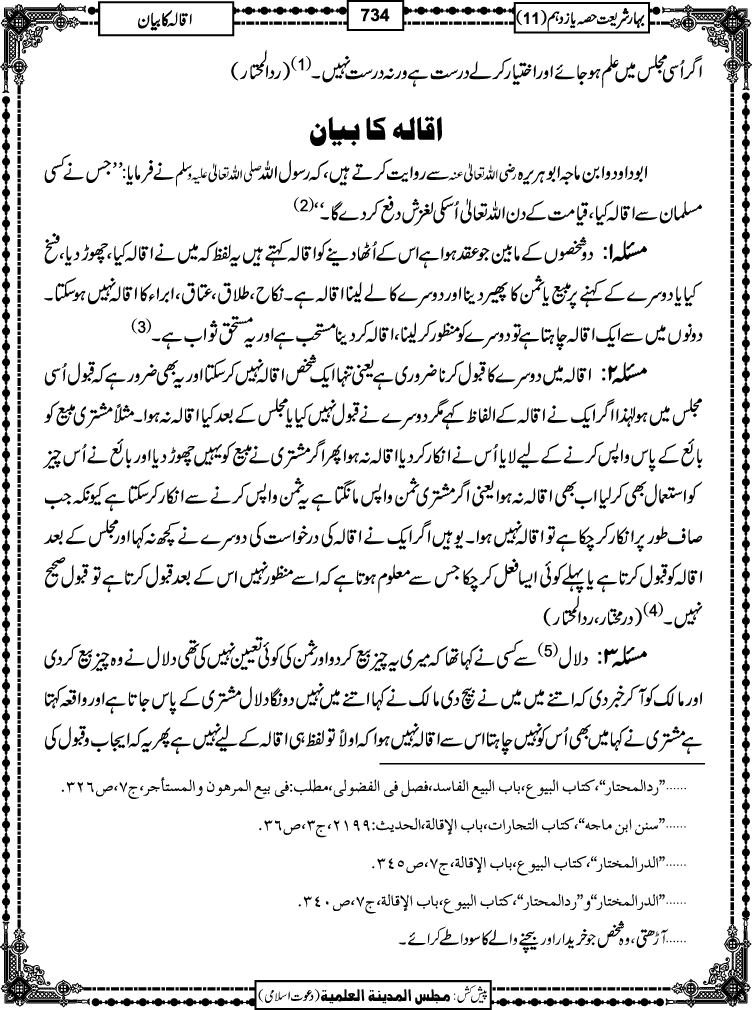 بہارِ شریعت حصہ یازدہم (11)
734
اقالہ کا بیان
اگر اُسی مجلس میں علم ہو جائے اور اختیار کر لے درست ہے ورنہ درست نہیں۔(1) (ردالمحتار)
اقالہ کا بیان
ابوداود و ابن ماجہ ابوہریرہ رضی اللہ تعالٰی عنہ سے روایت کرتے ہیں، کہ رسول اللہ صلی اللہ تعالٰی علیہ وسلم نے فرمایا: ’’جس نے کسی
مسلمان سے اقالہ کیا، قیامت کے دن اللہ تعالٰی اُسکی لغزش دفع کر دے گا۔‘‘(2)
مسئلہ ۱: دو شخصوں کے مابین جو عقد ہوا ہے اس کے اُٹھا دینے کو اقالہ کہتے ہیں یہ لفظ کہ میں نے اقالہ کیا، چھوڑ دیا، فسخ
کیا یا دوسرے کے کہنے پر مبیع یا ثمن کا پھیر دینا اور دوسرے کا لے لینا اقالہ ہے۔ نکاح، طلاق، عتاق، ابراء کا اقالہ نہیں ہوسکتا۔
دونوں میں سے ایک اقالہ چاہتا ہے تو دوسرے کو منظور کر لینا، اقالہ کر دینا مستحب ہے اور یہ مستحق ثواب ہے۔(3)
مسئلہ ۲: اقالہ میں دوسرے کا قبول کرنا ضروری ہے یعنی تنہا ایک شخص اقالہ نہیں کرسکتا اور یہ بھی ضرور ہے کہ قبول اُسی
مجلس میں ہو لہٰذا اگر ایک نے اقالہ کے الفاظ کہے مگر دوسرے نے قبول نہیں کیا یا مجلس کے بعد کیا اقالہ نہ ہوا۔ مثلاً مشتری مبیع کو
بائع کے پاس واپس کرنے کے لیے لایا اُس نے انکار کر دیا اقالہ نہ ہوا پھر اگر مشتری نے مبیع کو یہیں چھوڑ دیا اور بائع نے اُس چیز
کو استعمال بھی کر لیا اب بھی اقالہ نہ ہوا یعنی اگر مشتری ثمن واپس مانگتا ہے یہ ثمن واپس کرنے سے انکار کرسکتا ہے کیونکہ جب
صاف طور پر انکار کر چکا ہے تو اقالہ نہیں ہوا۔ یوہیں اگر ایک نے اقالہ کی درخواست کی دوسرے نے کچھ نہ کہا اور مجلس کے بعد
اقالہ کو قبول کرتا ہے یا پہلے کوئی ایسا فعل کر چکا جس سے معلوم ہوتا ہے کہ اسے منظور نہیں اس کے بعد قبول کرتا ہے تو قبول صحیح
نہیں۔(4) (درمختار، ردالمحتار)
مسئلہ ۳: دلال(5) سے کسی نے کہا تھا کہ میری یہ چیز بیع کر دو اور ثمن کی کوئی تعیین نہیں کی تھی دلال نے وہ چیز بیع کر دی
اور مالک کو آ کر خبر دی کہ اتنے میں میں نے بیچ دی مالک نے کہا اتنے میں نہیں دونگا دلال مشتری کے پاس جاتا ہے اور واقعہ کہتا
ہے مشتری نے کہا میں بھی اُس کو نہیں چاہتا اس سے اقالہ نہیں ہوا کہ اولاً تو لفظ ہی اقالہ کے لیے نہیں ہے پھر یہ کہ ایجاب و قبول کی
......"ردالمحتار"،كتاب البيوع،باب البيع الفاسد،فصل فى الفضولى،مطلب:فى بيع المرهون و المستأجر،ج٧،ص٣٢٦.
......"سنن ابن ماجه"،كتاب التجارات،باب الإقالة،الحديث:٢١٩٩،ج٣،ص٣٦.
......"الدرالمختار"،كتاب البيوع،باب الإقالة،ج٧،ص٣٤٥.
......"الدرالمختار"و"ردالمحتار"،كتاب البيوع،باب الإقالة،ج٧،ص٣٤٠.
......آڑھتی، وہ شخص جو خریدار اور بیچنے والے کا سودا طے کرائے۔
پیش کش: مجلس المدينة العلمية (دعوت اسلامی)